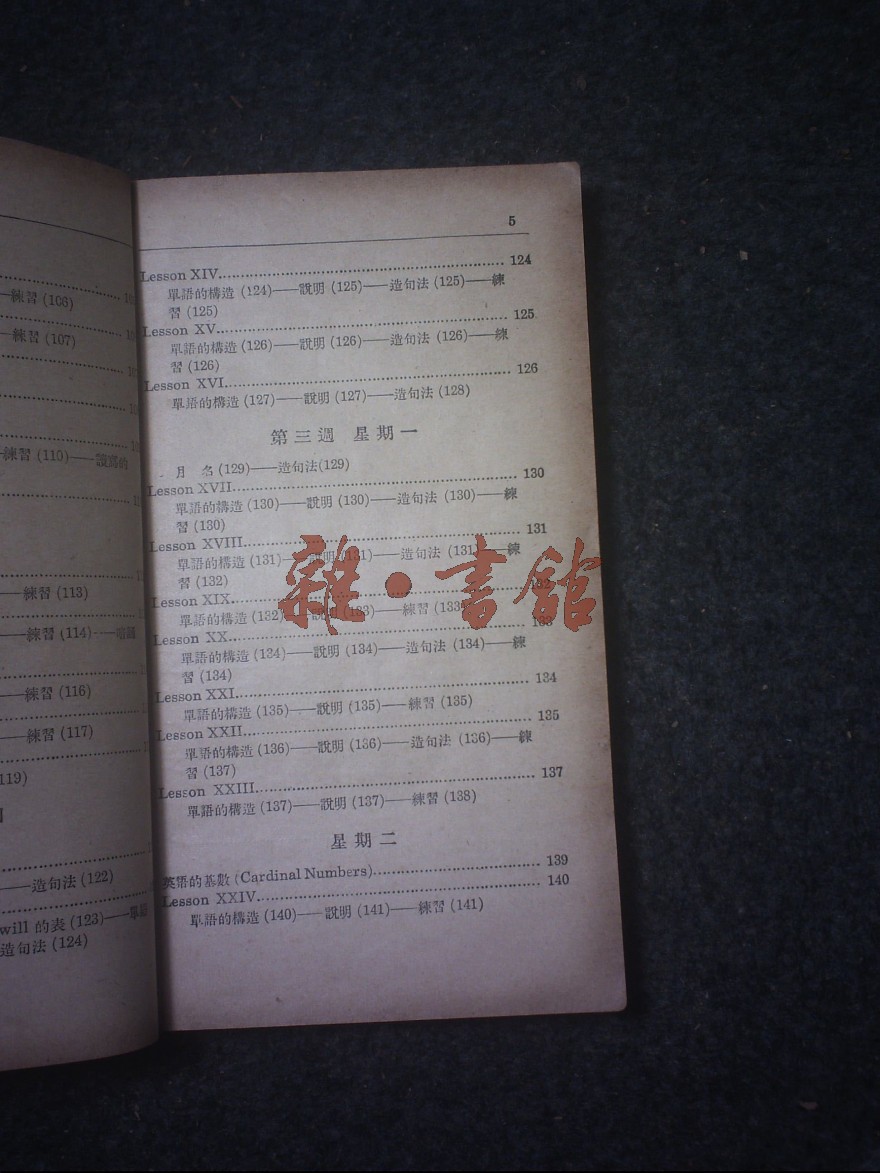 練習 (106)
練習 (107)
練習 (110)——讀寫的
練習 (113)
練習 (114)
練習 (116)
練習 (117)
119)
造句法 (122)
will 的表 (123)——單語
造句法 (124)
5
Lesson XIV 124
單語的構造 (124)——說明 (125)——造句法 (125)——練
習 (125)
Lesson XV 125
單語的構造 (126)——說明 (126)——造句法 (126)——練
習 (126)
Lesson XVI 126
單語的構造 (127)——說明 (127)——造句法 (128)
第三週 星期一
月 名 (129)——造句法(129)
Lesson XVII 130
單語的構造 (130)——說明 (130)——造句法 (130)——練
習 (130)
Lesson XVIII 131
單語的構造 (131)——說明 (131)——造句法 (131)——練
習 (132)
Lesson XIX 132
單語的構造 (132)——說明 (133)——練習 (133)
Lesson XX 133
單語的構造 (134)——說明 (134)——造句法 (134)——練
習 (134)
Lesson XXI 134
單語的構造 (135)——說明 (135)——練習 (135)
Lesson XXII 135
單語的構造 (136)——說明 (136)——造句法 (136)——練
習 (137)
Lesson XXIII 137
單語的構造 (137)——說明 (137)——練習 (138)
星期二
英語的基數 (Cardinal Numbers) 139
Lesson XXIV 140
單語的構造 (140)——說明 (141)——練習 (141)
雜·書館